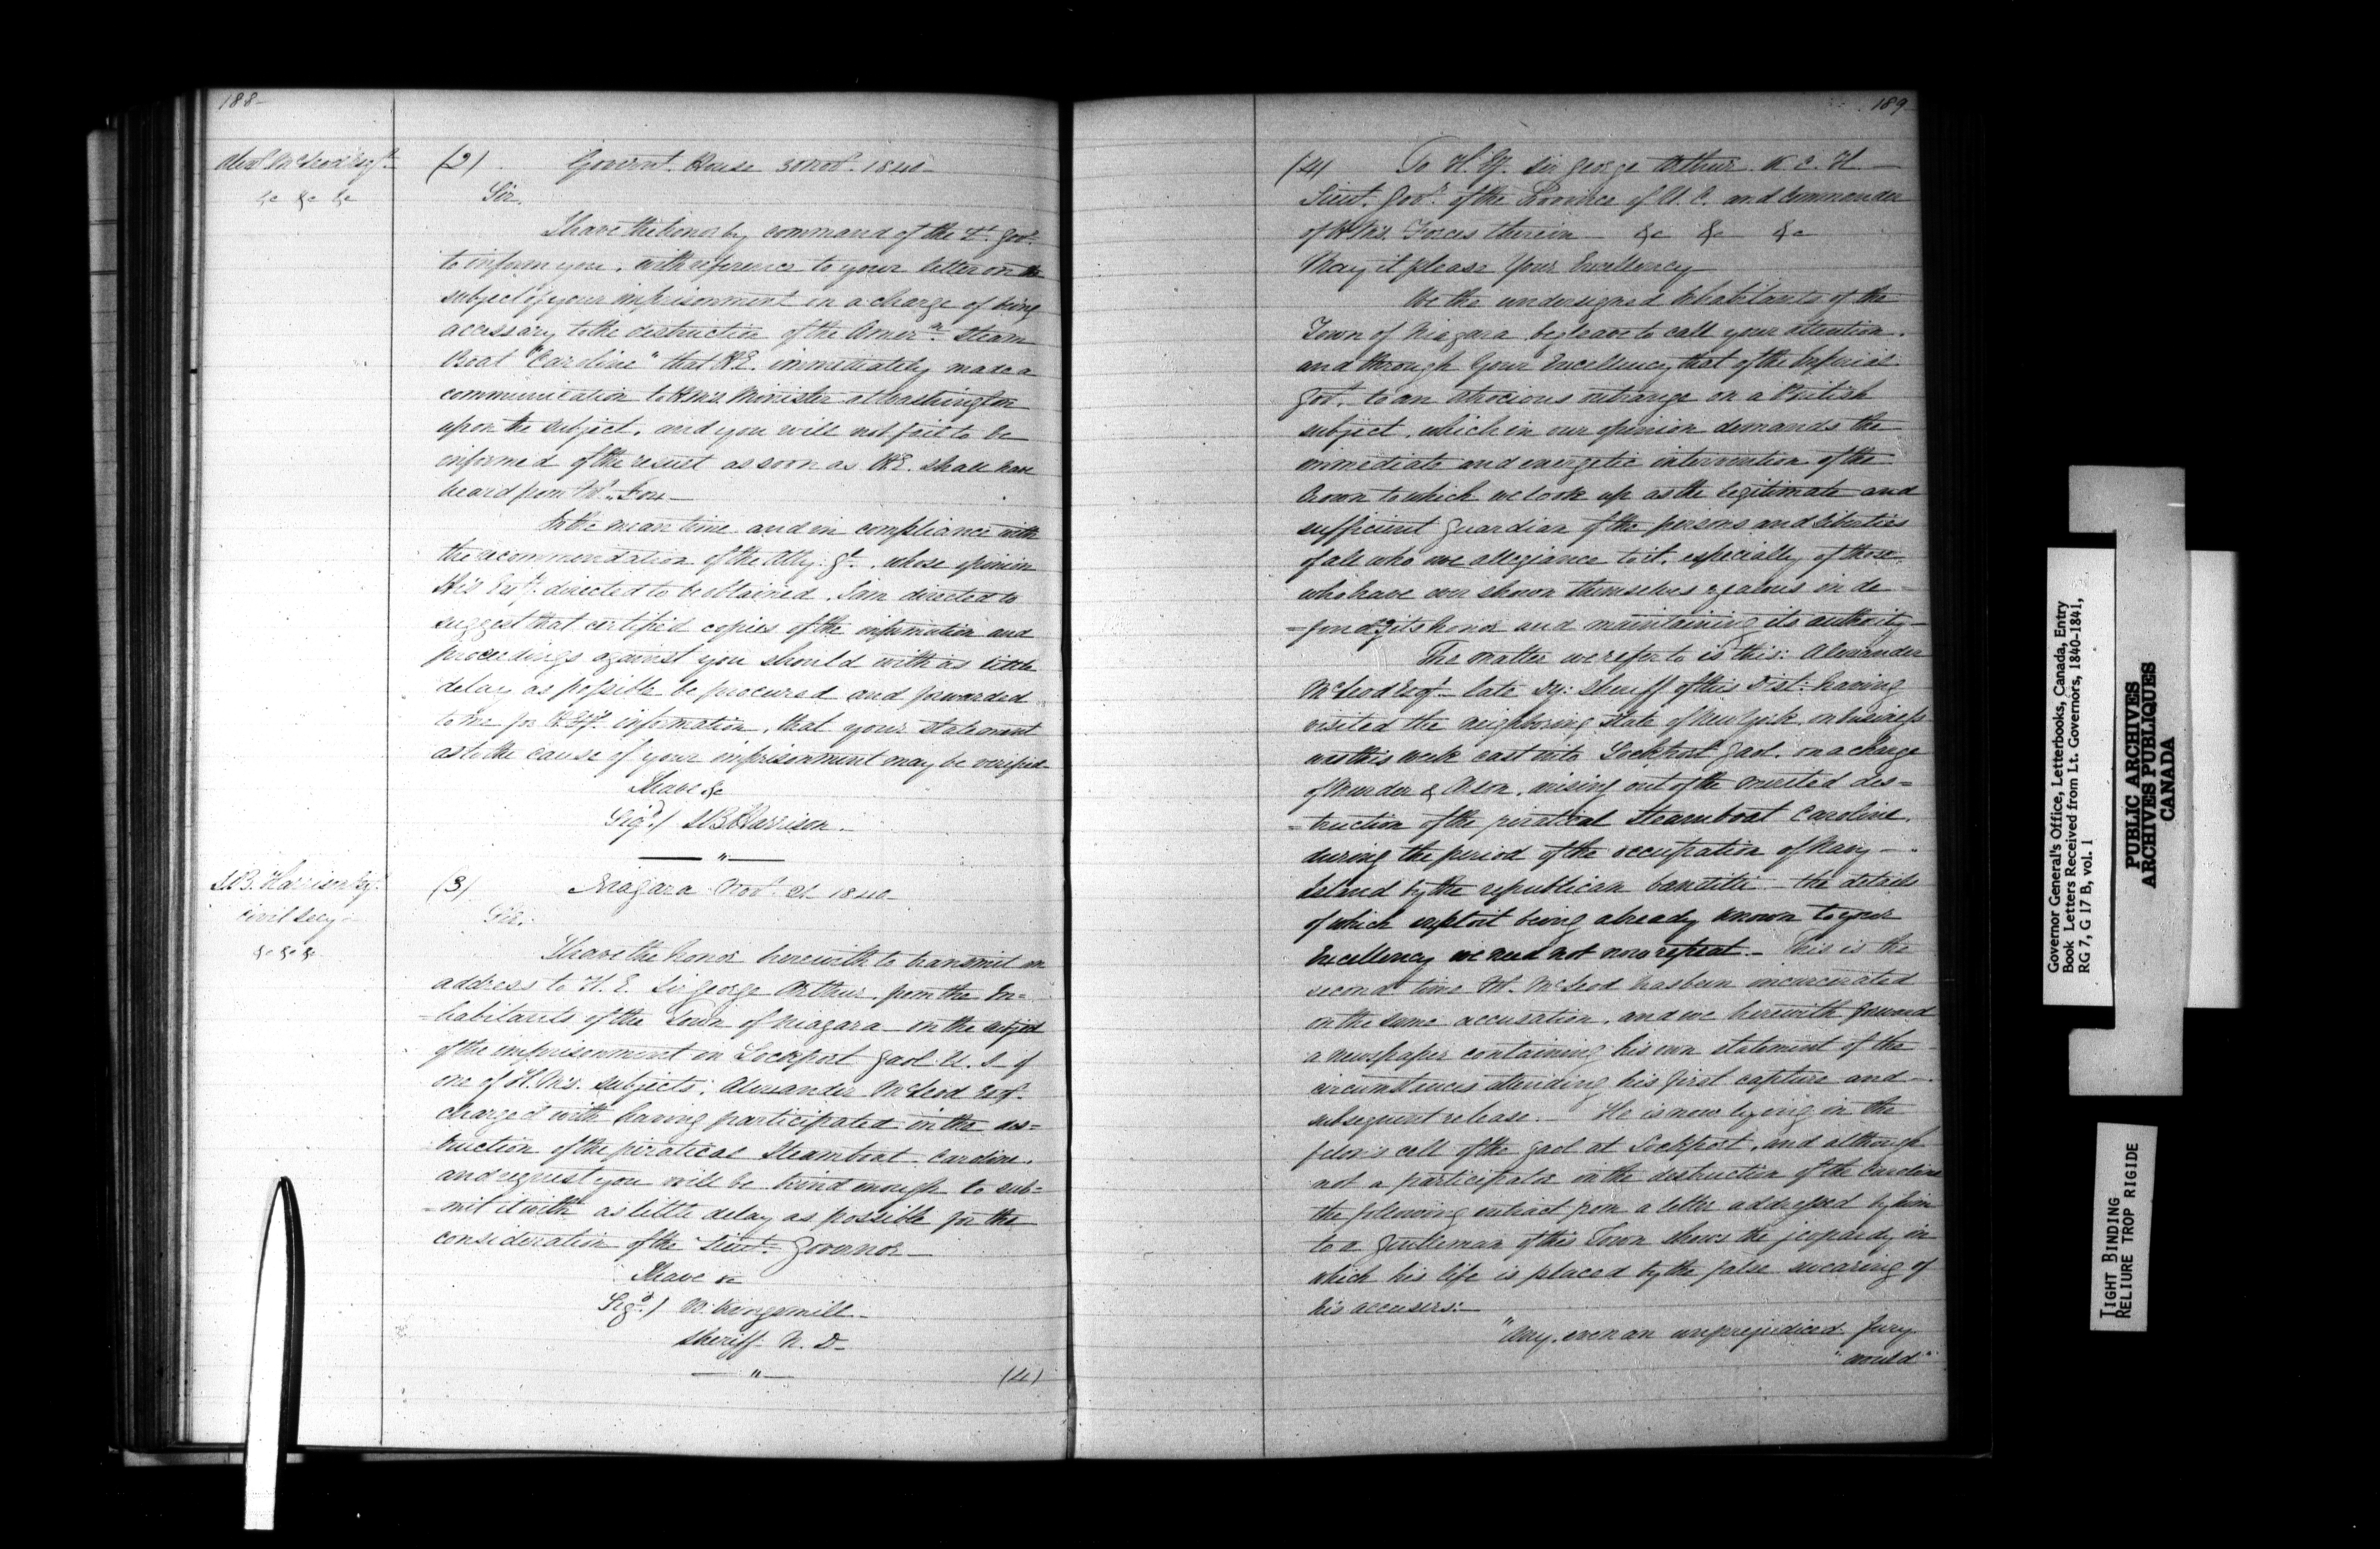 188-
Alexr McLeod Esqre
&c &c &c
(2) Governt. House 30 Novr. 1840-
Sir,
I have the honor by command of the Lt. Govr.
to inform you, with reference to your letter on the
subject of your imprisonment on a charge of being
accessary to the destruction of the Amern. Steam
Boat "Caroline" that H.E. immediately made a
communication to H.M's. Minister at Washington
upon the subject, and you will not fail to be
informed of the result as soon as H.E. shall have
heard from Mr. Fox-
In the mean time and in compliance with
the recommendation of the Atty: Gl., whose opinion
His Exy. directed to be obtained, I am directed to
suggest that certified copies of the information and
proceedings against you should with as little
delay as possible be procured and forwarded
to me for H. Ey's. information, that your statement
as to the cause of your imprisonment may be verified-
I have &c
Sigd./ S B Harrison-
S.B. Harrison Esqr.
Civil Secy-
&c &c &c
(3) Niagara Novr. 21 1840-
Sir,
I have the honor herewith to transmit an
address to H. E. Sir George Arthur from the In=
=habitants of the Town of Niagara on the subject
of the imprisonment in Lockport Gaol U. S. of
one of H. M's. subjects; Alexander McLeod Esqr.
charged with having participated in the des=
truction of the piratical Steamboat Caroline,
and request you will be kind enough to sub=
=mit it with as little delay as possible for the
consideration of the Lieut. Governor-
I have &c
Sigd./ W. Kingsmill-
Sheriff N. D-
(4)
189-
(4) To H. Ey. Sir George Arthur K. C. H.-
Lieut. Govr. of the Province of U. C. and Commander
of H M's. Forces therein - &c &c &c
May it please Your Excellency-
We the undersigned Inhabitants of the
Town of Niagara beg leave to call your attention,
and through Your Excellency that of the Imperial
Govt. to an atrocious outrange on a British
subject, which in our opinion demands the
immediate and energetic intervention of the
Crown to which we look up as the legitimate and
sufficient Guardian of the persons and Liberties
of all who owe allegiance to it, especially of those
who have ever shown themselves zealous in de-
=fendg its honor and maintaining its authority-
The matter we refer to is this: Alexander
McLeod Esqr. late Dy: Sheriff of this Dist: having
visited the neighboring State of New York on business
was this week cast into Lockport Gaol, on a charge
of Murder & Arson, arising out of the merited des=
=truction of the piratical Steamboat Caroline,
during the period of the occupation of Navy-
Island by the republican banditti - the details
of which exploit being already known to your
Excellency we need not now repeat - This is the
second time Mr. McLeod has been incarcerated
on the same accusation, and we herewith forward
a newspaper containing his own statement of the
circumstances attending his first capture and
subsequent release. - He is now lying in the
felon's cell of the gaol at Lockport, and although
not a participator in the destruction of the Caroline
the following extract from a letter addressed by him
to a Gentleman of this Town shows the jeopardy in
which his life is placed by the false swearing of
his accusers:-
"Any, even an unprejudiced Jury
"would"
Governor General's Office, Letterbooks, Canada, Entry
Book Letters Received from Lt. Governors, 1840-1841,
RG 7, G 17 B, vol. 1
PUBLIC ARCHIVES
ARCHIVES PUBLIQUES
CANADA
TIGHT BINDING
RELIURE TROP RIGIDE